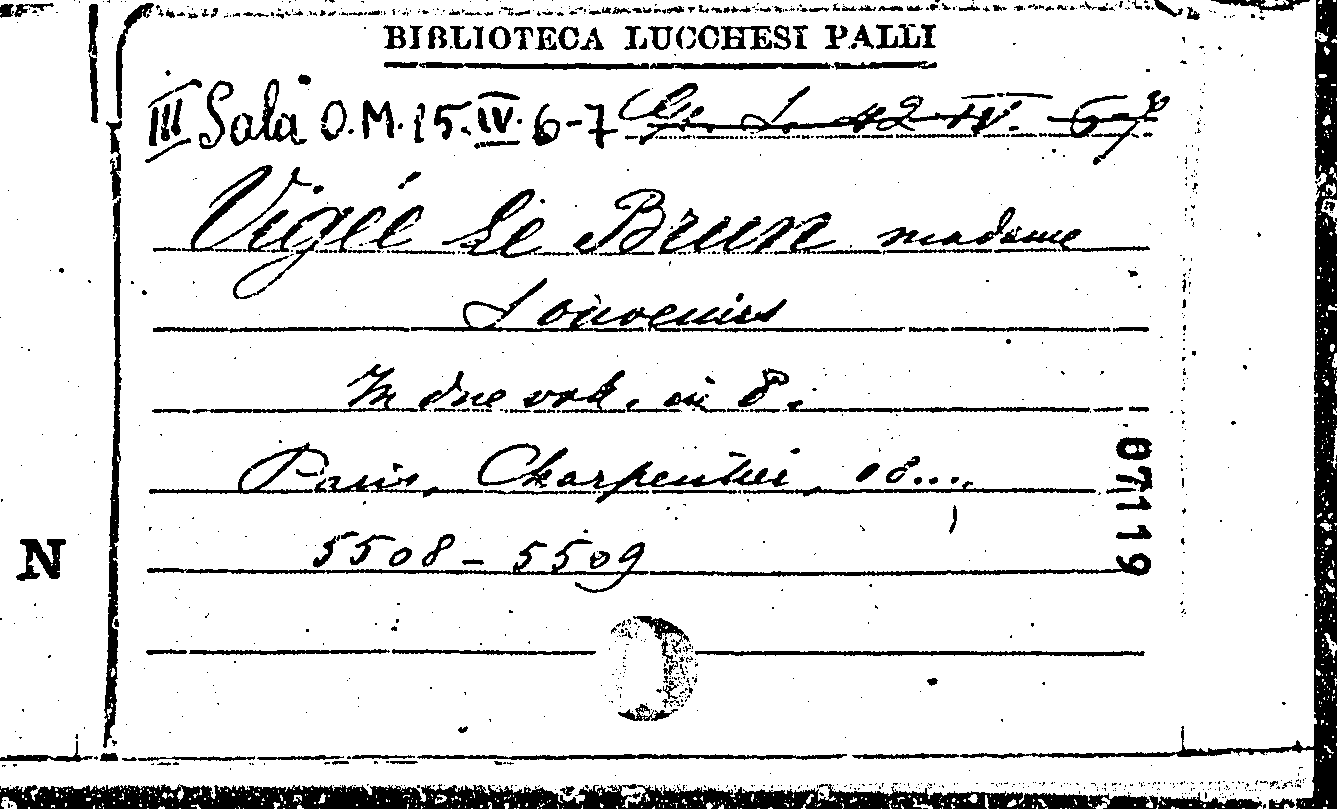 BIBLIOTECA LUCCHESI PALLI
III Sala O.M. 15. IV. 6-7 Gr. L. 42 IV. 6-7
Vigée Le Brun madame
Souvenirs
In due vol. in 8.
Paris, Charpentier, 18....
5508 - 5509
67119
N